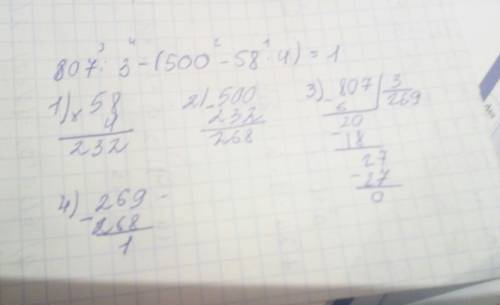 3 4 2 1
807 : 3 - (500 - 58 · 4) = 1
1) 58 2) 500 3) 807 | 3
× 4 - 232 - 6 269
232 268 20
- 18
27
- 27
0
4) 269
- 268
1